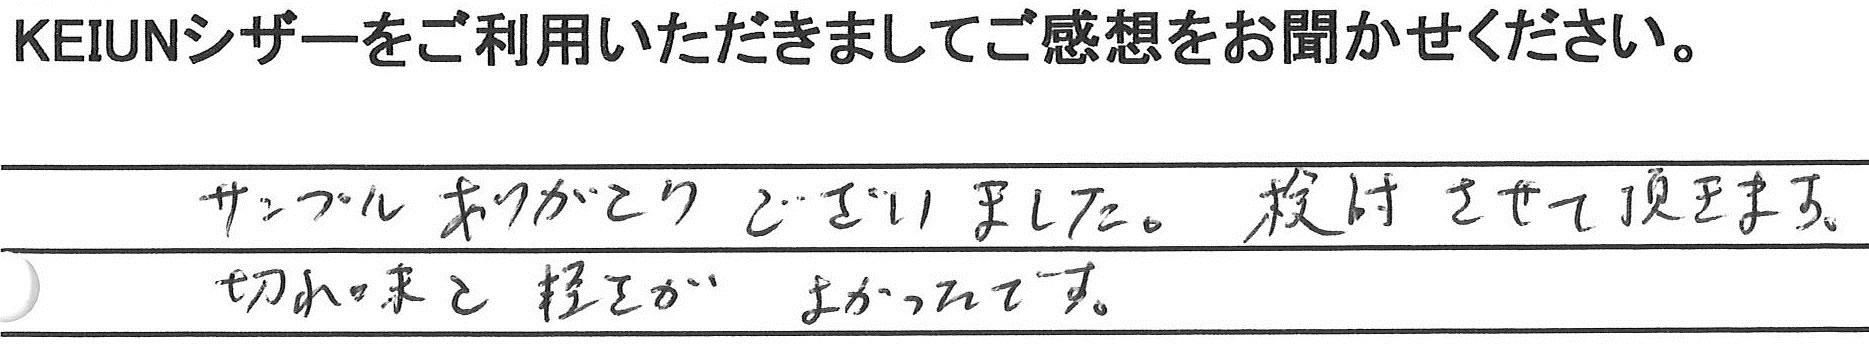 KEIUNシザーをご利用いただきましてご感想をお聞かせください。
サンプルありがとうございました。検討させて頂きます。
切れ味と軽さがよかったです。